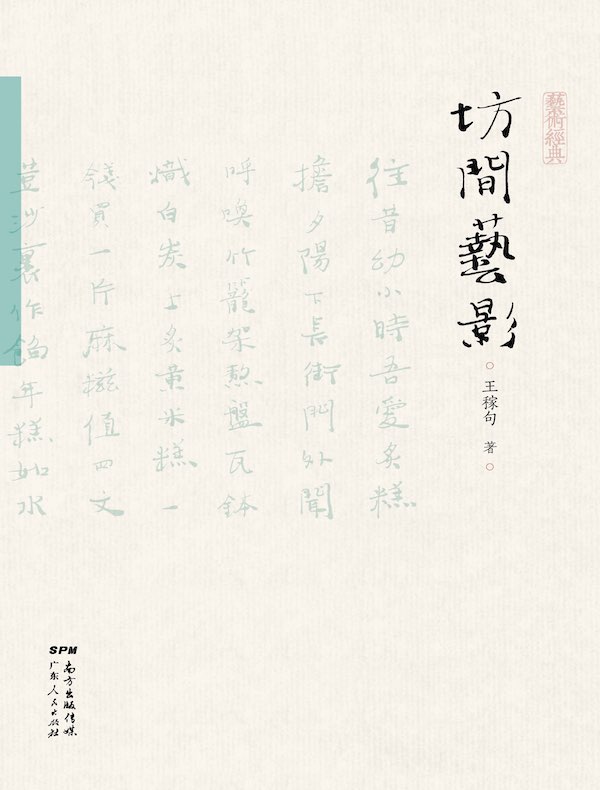 藝術經典
坊間藝影
王稼句 著
往昔幼小時吾愛炙糕
擔夕陽下長街門外聞
呼喚竹籠架熬盤瓦缽
熾白炭上炙黃米糕一
錢買一片麻糍值四文
荳沙裏作餡年糕如水
SPM
南方出版传媒
广东人民出版社